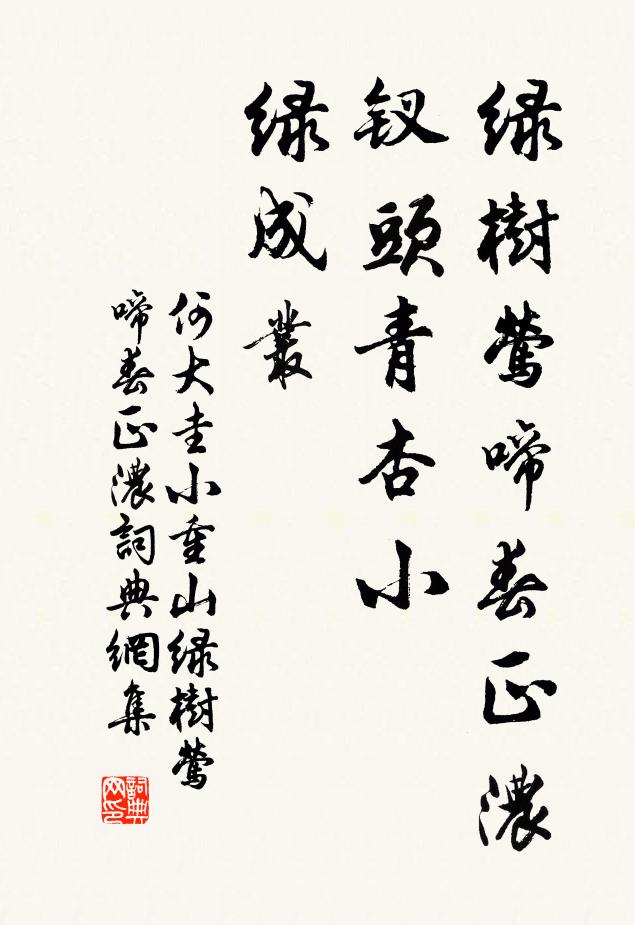 绿樹鶯啼春正濃
钗頭青杏小
绿成叢
何大圭小重山绿樹鶯
啼春正濃詞典網集
詞典
网印